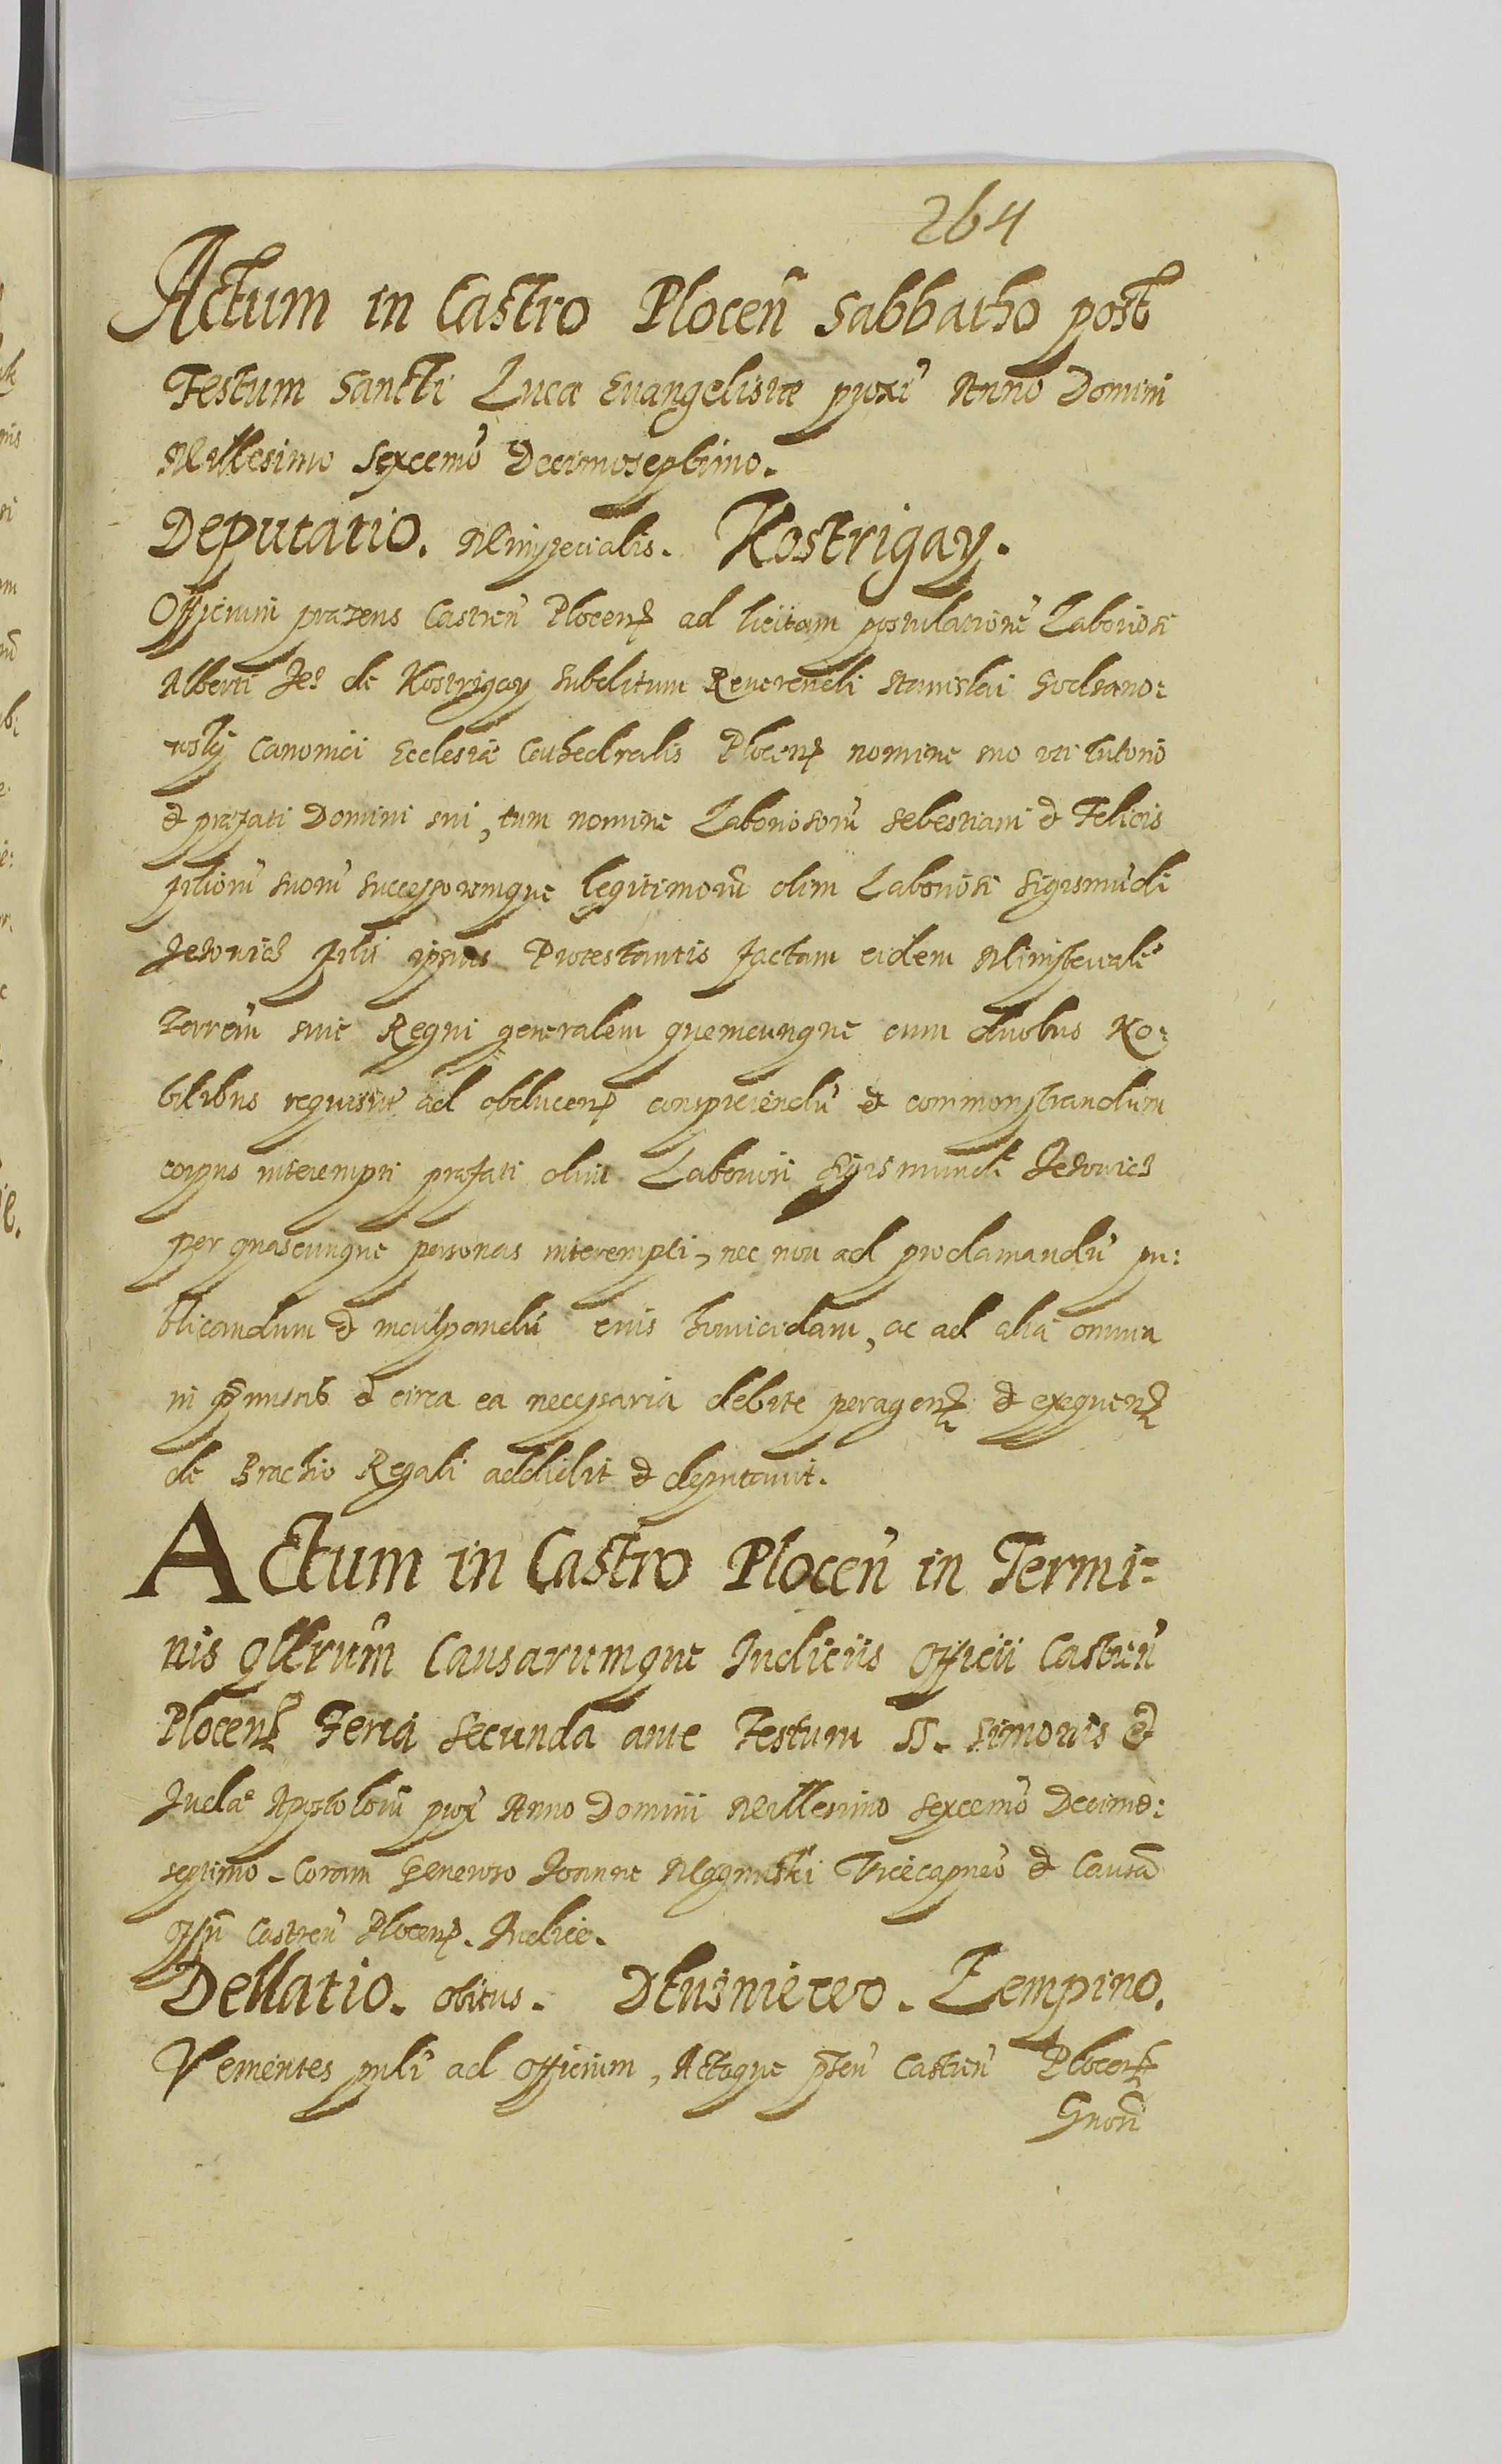 264
Actum in Castro Plocen̄ Sabbatho post
Festum Sancti Lucæ Euangelistæ proxi̓ Anno Domini
Millesimo Sexcemo̓ Decimoseptimo.
Deputatio. Ministerialis. Kostrigay.
Officium præsens Castren̄ Plocenꝭ ad licitam postulationē Laboriosi
Alberti Jeʒ de Kostrigay Subditum Reverendi Stanislai
Canonici Ecclesiæ Cathedralis Plocenꝭ nomine suo uti Tutorio
et præfati Domini sui, tum nomine Laboriosorū Sebestiani et Felicis
filiorū suorū successorumque legitimorū olim Laboriosi Sigismūdi
Jeʒowicʒ filii ipsius Protestantis factam eidem Ministerialē
Terren̄ siue Regni generalem quemcunque cum duobus No:
bilibus requisit̓ ad obducenꝭ conspiciendū et commonstrandum
corpus interempti præfati olim Laboriosi Sigismundi Jeʒowicʒ
per quascunque personas interempti, nec non ad proclamandū pu:
blicandum et inculpandū eius homicidam, ac ad alia omnia
in præmissis et circa ea necessaria debite peragenꝭ et exequenꝭ
de Brachio Regali addidit et deputauit.
Actum in Castro Plocen̄ in Termi=
nis qllrum̄ Causarumque Iudiciis Officii Castren̄
Plocenꝭ Feria Secunda ante Festum SS. Simonis et
Iudæ Apostolorū prox̓ Anno Domini Millesimo Sexcemo̓ Decimo:
septimo. Coram Generoso Ioanne Vicecapneo̓ et Causar̄
Offii̓ Castren̄ Plocenꝭ. Iudice.
Dellatio. obitus. Dłusniewo. Lempino.
Venientes pnli̓ ad Officium, Actaque p̄sen̄ Castren̄ Plocenꝭ
Gnosi̓